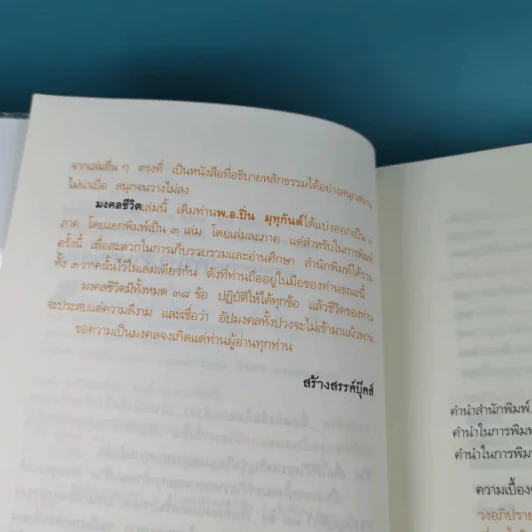 จากเล่มอื่น ๆ ตรงที่ เป็นหนังสือที่อธิบายหลักธรรมได้อย่างสนุกสนาน
ไม่น่าเบื่อ สนุกจนวางไม่ลง
มงคลชีวิตเล่มนี้ เดิมท่านพ.อ.ปิ่น มุทุกันต์ได้แบ่งออกเป็น ๓
ภาค โดยแยกพิมพ์เป็น ๓ เล่ม โดยเล่มละภาค แต่สำหรับในการพิมพ์
ครั้งนี้ เพื่อสะดวกในการเก็บรวบรวมและอ่านศึกษา สำนักพิมพ์ได้รวม
ทั้ง ๓ ภาคนั้นไว้ในเล่มเดียวกัน ดังที่ท่านถืออยู่ในมือของท่านขณะนี้
มงคลชีวิตมีทั้งหมด ๓๘ ข้อ ปฏิบัติให้ได้ทุกข้อ แล้วชีวิตของท่าน
จะประสบแต่ความดีงาม และเชื่อว่า อัปมงคลทั้งปวงจะไม่เข้ามาแผ้วพาน
ขอความเป็นมงคลจงเกิดแด่ท่านผู้อ่านทุกท่าน
สร้างสรรค์บุ๊คส์
คำนำสำนักพิมพ์
คำนำในการพิมพ
คำนำในการพิม
ความเบื้อง
วงอภิปราย